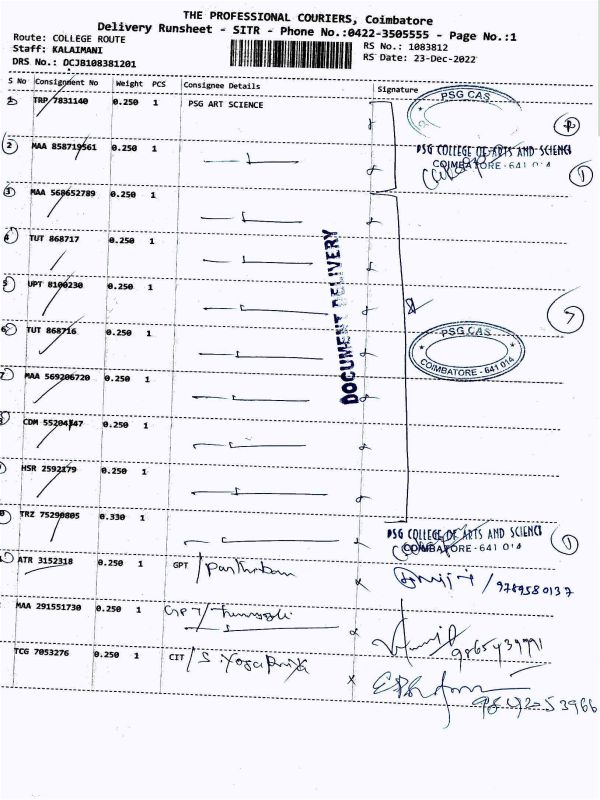 THE PROFESSIONAL COURIERS, Coimbatore
Delivery Runsheet - SITR - Phone No.:0422-3505555 - Page No.:1
Route: COLLEGE ROUTE
Staff: KALAIMANI
DRS No.: DCJB108381201
RS No.: 1083812
RS Date: 23-Dec-2022
S No Consignment No Weight PCS Consignee Details Signature
TRP 7831140 0.250 1 PSG ART SCIENCE
PSG CAS
2 MAA 858719561 0.250 1
PSG COLLEGE OF ARTS AND SCIENCE
COIMBATORE - 641 014
3 MAA 568652789 0.250 1
4 TUT 868717 0.250 1
5 UPT 8100230 0.250 1
6 TUT 868716 0.250 1
DOCUMENT DELIVERY
PSG CAS
COIMBATORE - 641 014
7 MAA 569206720 0.250 1
CDM 55204747 0.250 1
HSR 2592179 0.250 1
0 TRZ 75290805 0.330 1
PSG COLLEGE OF ARTS AND SCIENCE
COIMBATORE - 641 014
ATR 3152318 0.250 1 GPT
9789580137
MAA 291551730 0.250 1 GPT
9865439791
TCG 7053276 0.250 1 CIT / S. Yogapriya